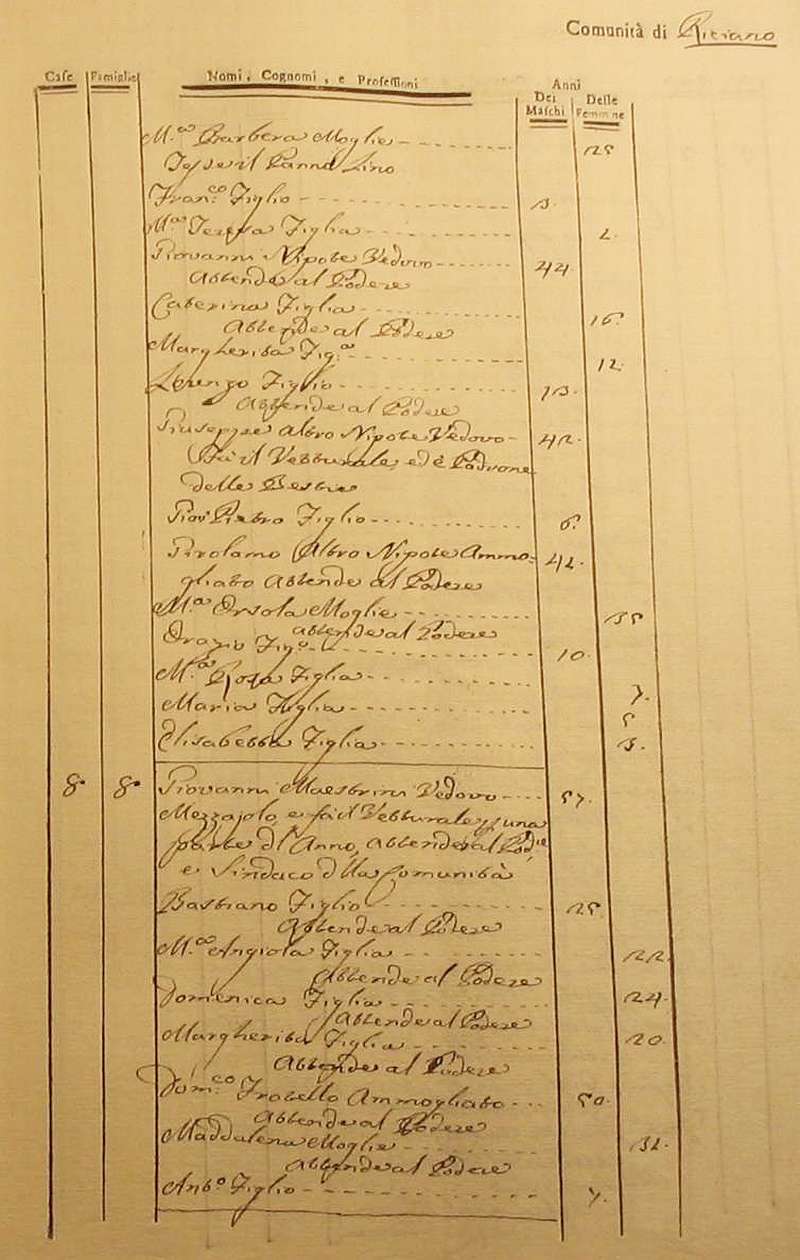 Comunità di Riciano
Case Famiglie Nomi, Cognomi, e Professioni Anni
Dei Maschi Delle Femmine
M.ª Barbera Moglie 25
Tesse il Panno Lino
Fran.co Figlio 3.
M.ª Teresa Figlia 2.
Giovanni Nipote Vedovo 44
Attende al Podere
Caterina Figlia 16
Attende al Podere
Margherita Fig.ª 12.
Lorenzo Figlio 13.
Attende al Podere
Giuseppe altro Nipote Vedovo 42.
Fà il Vetturale, ed è Padrone
delle Bestie
Giov Pietro Figlio 6
Girolamo Altro Nipote Ammo=
gliato Attende al Podere 42.
M.ª Orsola Moglie 35
Attende al Podere
Orazio Fig.º 10.
M.ª Rosa Figlia 7.
Maria Figlia 5
Elisabetta Figlia 3.
8. 8. Giovanni Maestrini Vedovo 57.
Mezzajolo, e fà il Vetturale una
parte dl'Anno, Attende al Pod.re
e Sindaco dlla Comunità
Bastiano Figlio 25
Attende al Podere
M.ª Angiola Figlia 22.
Attende al Podere
Domenica Figlia 24.
Attende al Podere
Margherita Figlia 20
Attende al Podere
Dom.co Fratello Ammogliato 50
Attende al Podere
Maddalena Moglie 32.
Attende al Podere
Ant.º Figlio 7.